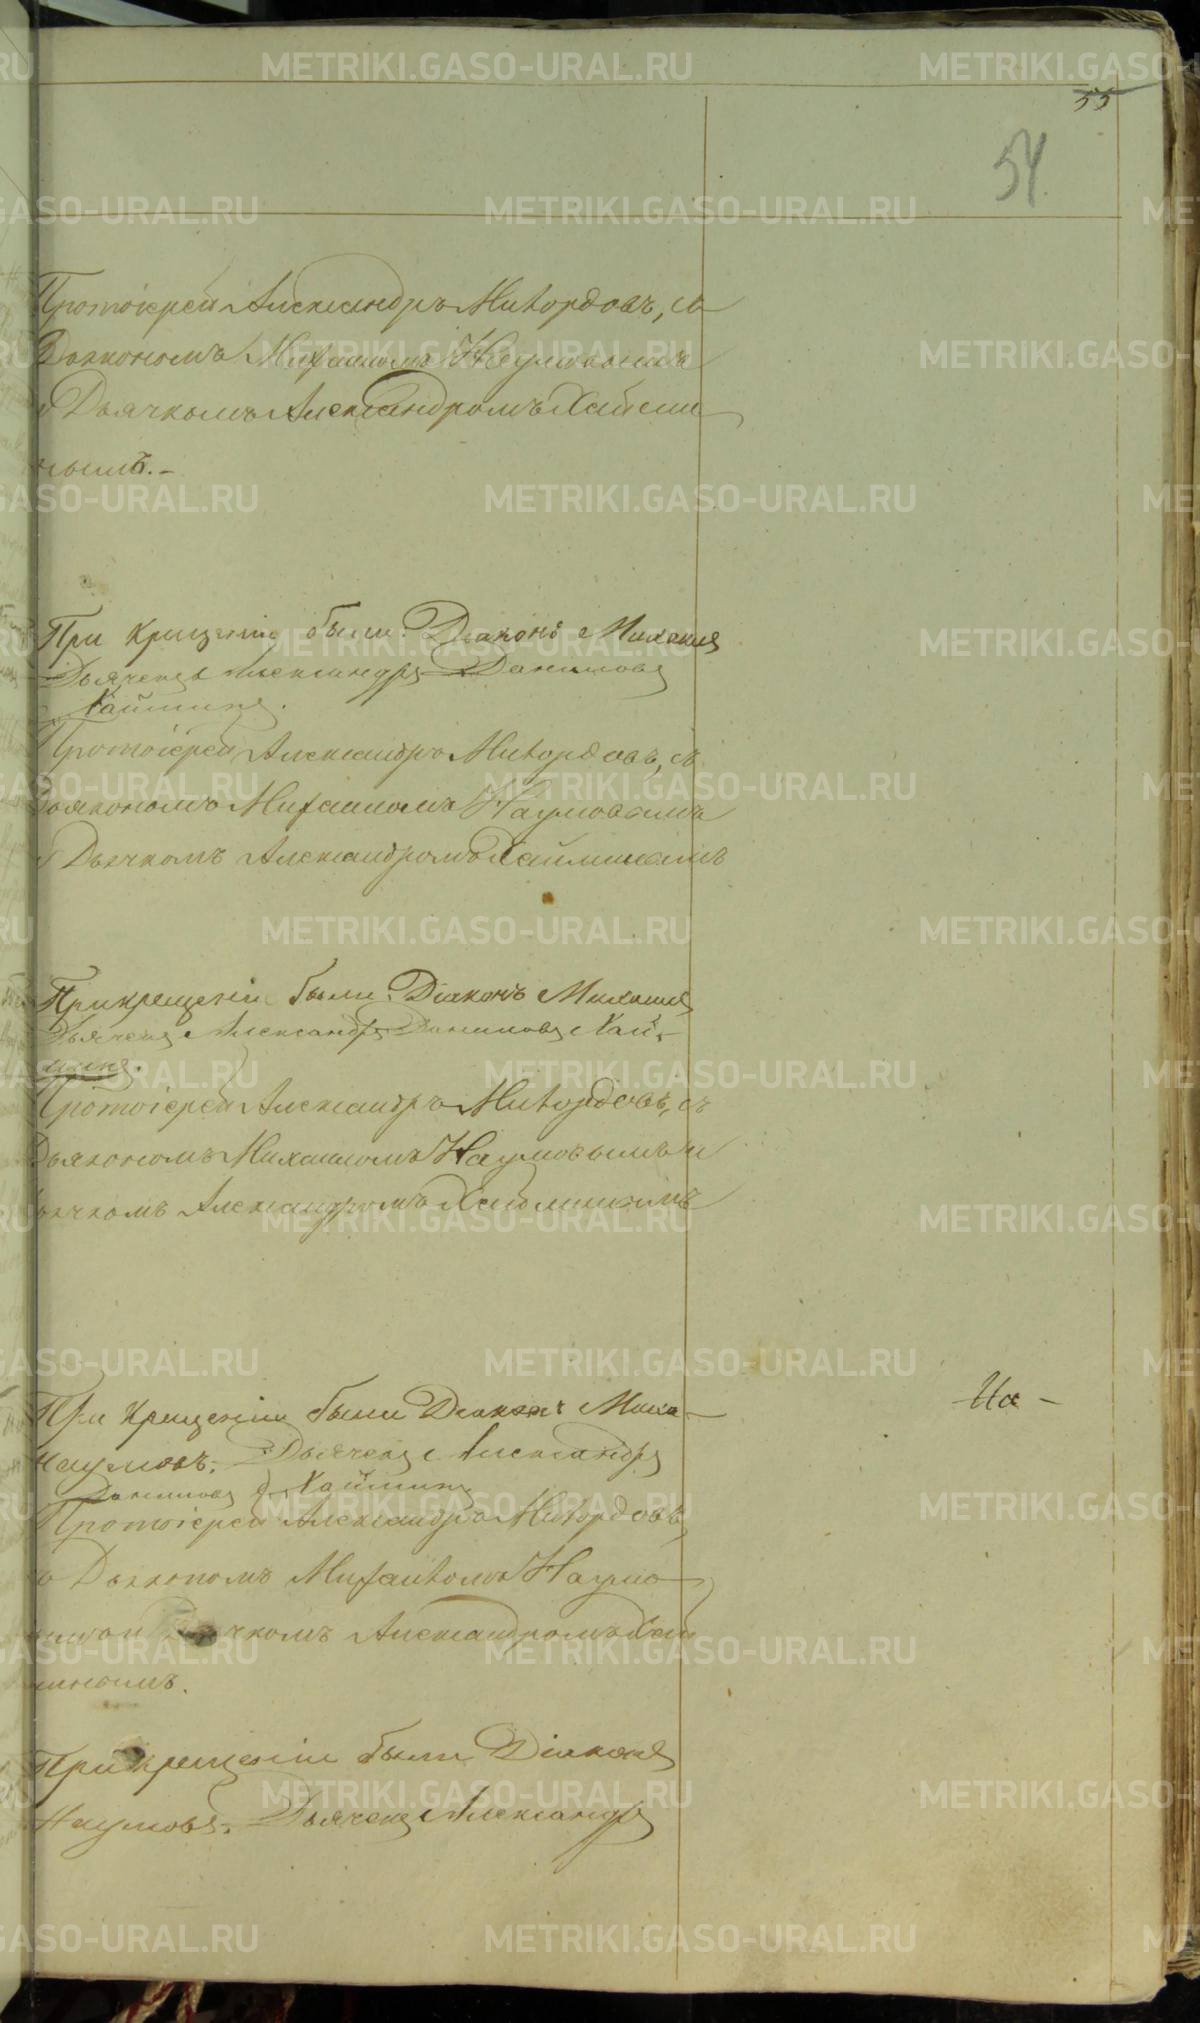 55
54
Протоіерей Александръ Мивордовъ, съ
Дьякономъ Михаиломъ Наумовымъ
и Дьячкомъ Александромъ Хайми
нымъ.-
При крещеніи были: Діаконъ Михаилъ
Дьячекъ Александръ Даниловъ
Хайминъ.
Протоіерей Александръ Мивордовъ, съ
Дьякономъ Михаиломъ Наумовымъ
и Дьячкомъ Александромъ Хайминымъ
При крещеніи были: Діаконъ Михаилъ
Дьячекъ Александръ Даниловъ Хай-
минъ.
Протоіерей Александръ Мивордовъ, съ
Дьякономъ Михаиломъ Наумовымъ и
Дьячкомъ Александромъ Хайминымъ
При крещеніи были Діаконъ Миха-
Наумовъ. Дьячекъ Александръ
Даниловъ Хайминъ
Протоіерей Александръ Мивордовъ,
съ Дьякономъ Михаиломъ Наумо-
вымъ и Дьячкомъ Александромъ Хай
минымъ.
При крещеніи были Діаконъ
Наумовъ. Дьячекъ Александръ
На -
METRIKI.GASO-URAL.RU